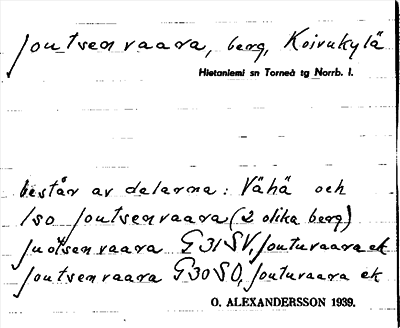 Joutsenvaara, berg, Koivukylä
Hietaniemi sn Torneå tg Norrb. l.
består av delarna: Vähä och
Iso Joutsenvaara (2 olika berg)
Juotsenvaara G31SV, Joutuvaara ek
Joutsenvaara G30SO, Joutuvaara ek
O. ALEXANDERSSON 1939.